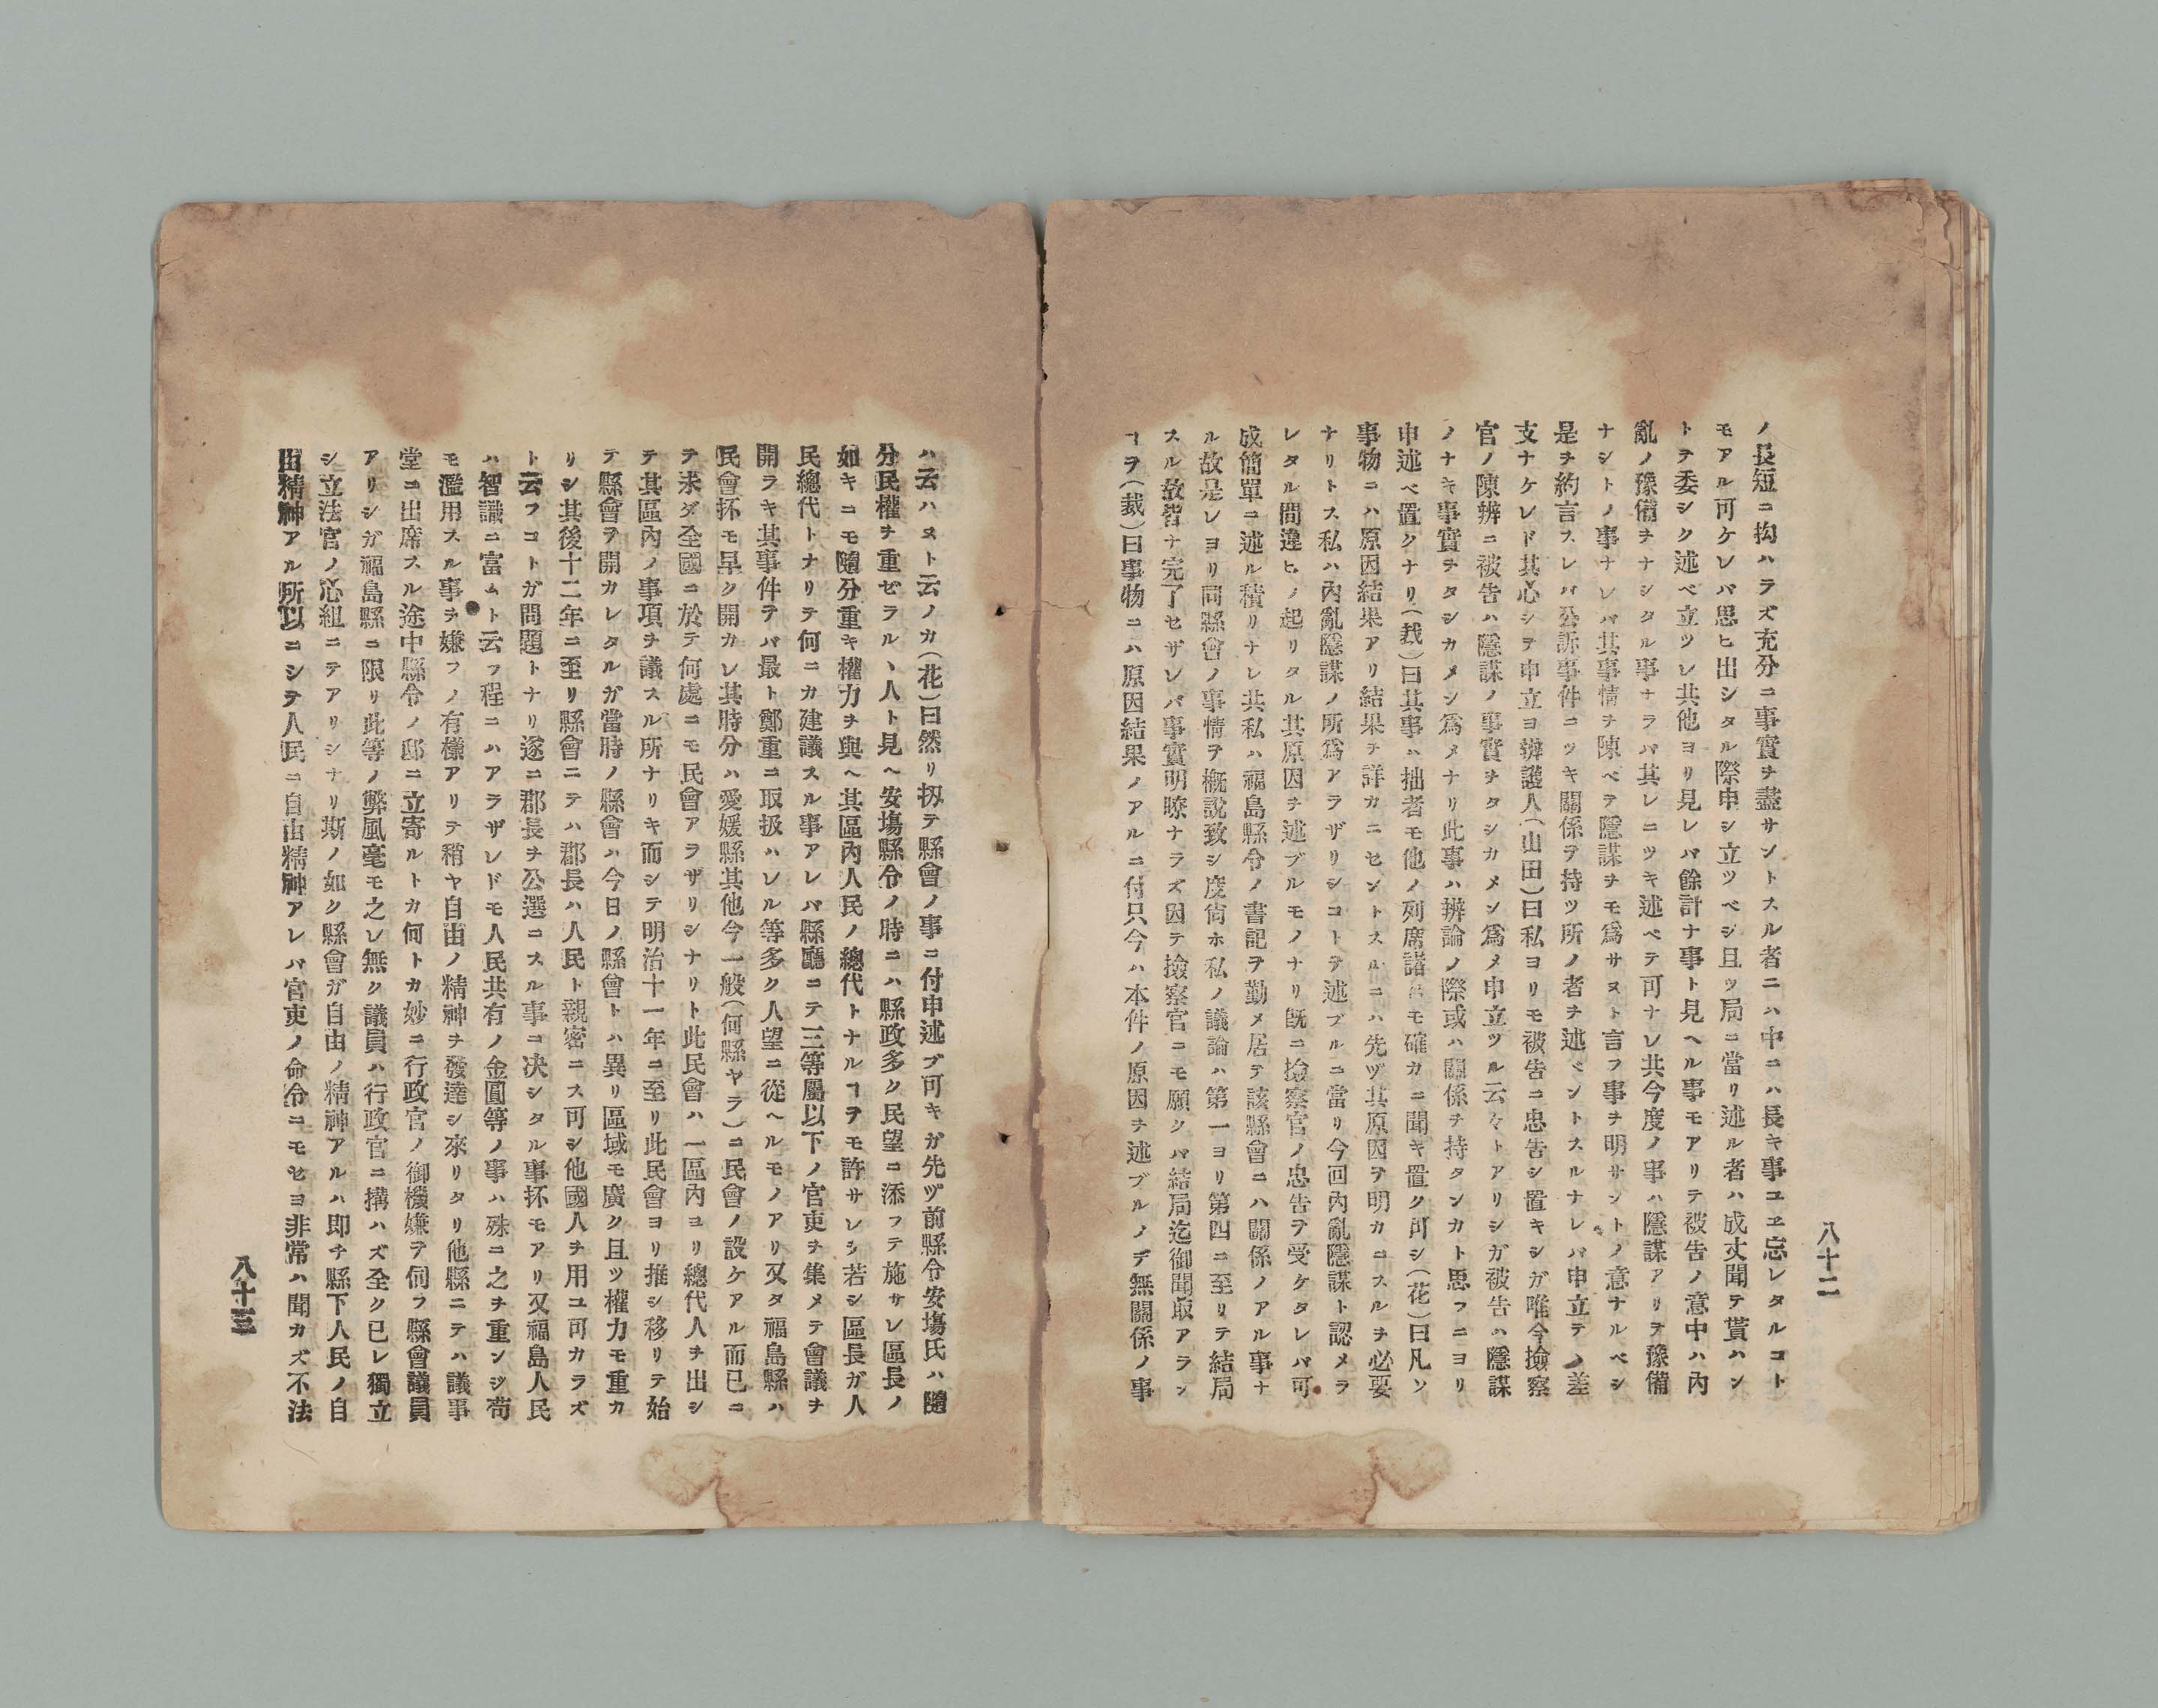 八十二
ノ長短ニ拘ハラズ充分ニ事實ヲ盡サントスル者ニハ中ニハ長キ事ユヱ忘レタルコト
モアル可ケレバ思ヒ出シタル際申シ立ツベシ且ツ局ニ當リ述ル者ハ成丈聞テ貰ハン
トヲ委シク述ベ立ツレ共他ヨリ見レバ餘計ナ事ト見ヘル事モアリテ被告ノ意中ハ內
亂ノ豫備ヲナシタル事ナラバ其レニツキ述ベテ可ナレ共今度ノ事ハ隱謀アリヲ豫備
ナシトノ事ナレバ其事情ヲ陳ベテ隱謀ヲモ爲サヌト言フ事ヲ明サントノ意ナルベシ
是ヲ約言スレバ公訴事件ニツキ關係ヲ持ツ所ノ者ヲ述ベントスルナレバ申立テノ差
支ナケレド其心シテ申立ヨ辨護人(山田)曰私ヨリモ被告ニ忠告シ置キシガ唯今撿察
官ノ陳辨ニ被告ハ隱謀ノ事實ヲタシカメン爲メ申立ツル云々トアリシガ被告ハ隱謀
ノナキ事實ヲタシカメン爲メナリ此事ハ辨論ノ際或ハ關係ヲ持タンカト思フニヨリ
申述ベ置クナリ(裁)曰其事ハ拙者モ他ノ列席諸氏モ確カニ聞キ置ク可シ(花)曰凡ソ
事物ニハ原因結果アリ結果ヲ詳カニセントスルニハ先ヅ其原因ヲ明カニスルヲ必要
ナリトス私ハ內亂隱謀ノ所爲アラザリシコトヲ述ブルニ當リ今回內亂隱謀ト認メラ
レタル間違ヒノ起リタル其原因ヲ述ブルモノナリ既ニ撿察官ノ忠告ヲ受ケタレバ可
成簡單ニ述ル積リナレ共私ハ福島縣令ノ書記ヲ勤メ居テ該縣會ニハ關係ノアル事ナ
ル故是レヨリ同縣會ノ事情ヲ概說致シ度尙ホ私ノ議論ハ第一ヨリ第四ニ至リテ結局
スル故皆ナ完了セザレバ事實明瞭ナラズ因テ撿察官ニモ願クバ結局迄御聞取アラン
ヿヲ(裁)曰事物ニハ原因結果ノアルニ付只今ハ本件ノ原因ヲ述ブルノデ無關係ノ事
ハ云ハヌト云ノカ(花)曰然リ扨テ縣會ノ事ニ付申述ブ可キガ先ヅ前縣令安塲氏ハ隨
分民權ヲ重ゼラルヽ人ト見ヘ安塲縣令ノ時ニハ縣政多ク民望ニ添フテ施サレ區長ノ
如キニモ隨分重キ權力ヲ與ヘ其區內人民ノ總代トナルヿヲモ許サレシ若シ區長ガ人
民總代トナリテ何ニカ建議スル事アレバ縣廳ニテ三等屬以下ノ官吏ヲ集メテ會議ヲ
開ラキ其事件ヲバ最ト鄭重ニ取扱ハレル等多ク人望ニ從ヘルモノアリ又タ福島縣ハ
民會抔モ早ク開カレ其時分ハ愛媛縣其他今一般(何縣ヤラ)ニ民會ノ設ケアル而已ニ
テ未ダ全國ニ於テ何處ニモ民會アラザリシナリト此民會ハ一區內ヨリ總代人ヲ出シ
テ其區內ノ事項ヲ議スル所ナリキ而シテ明治十一年ニ至リ此民會ヨリ推シ移リテ始
テ縣會ヲ開カレタルガ當時ノ縣會ハ今日ノ縣會トハ異リ區域モ廣ク且ツ權力モ重カ
リシ其後十二年ニ至リ縣會ニテハ郡長ハ人民ト親密ニス可シ他國人ヲ用ユ可カラズ
ト云フコトガ問題トナリ遂ニ郡長ヲ公選ニスル事ニ决シタル事抔モアリ又福島人民
ハ智識ニ富ムト云フ程ニハアラザレドモ人民共有ノ金圓等ノ事ハ殊ニ之ヲ重ンジ苟
モ濫用スル事ヲ嫌フノ有樣アリテ稍ヤ自由ノ精神ヲ發達シ來リタリ他縣ニテハ議事
堂ニ出席スル途中縣令ノ邸ニ立寄ルトカ何トカ妙ニ行政官ノ御機嫌ヲ伺フ縣會議員
アリシガ福島縣ニ限リ此等ノ弊風毫モ之レ無ク議員ハ行政官ニ搆ハズ全ク已レ獨立
シ立法官ノ心組ニテアリシナリ斯ノ如ク縣會ガ自由ノ精神アルハ即チ縣下人民ノ自
由精神アル所以ニシテ人民ニ自由精神アレバ官吏ノ命令ニモセヨ非常ハ聞カズ不法
八十三